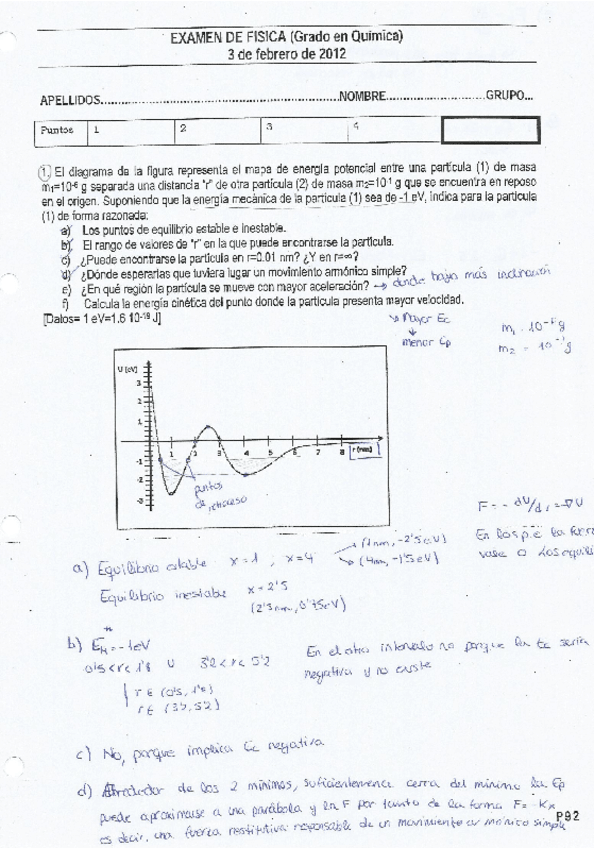 EXAMEN DE FISICA (Grado en Química)
3 de febrero de 2012
APELLIDOS..............................................................NOMBRE..........................GRUPO...
Puntos 1 2 3 4
1. El diagrama de la figura representa el mapa de energía potencial entre una partícula (1) de masa
m₁=10⁻⁶ g separada una distancia "r" de otra partícula (2) de masa m₂=10⁻¹ g que se encuentra en reposo
en el origen. Suponiendo que la energía mecánica de la partícula (1) sea de -1 eV, indica para la partícula
(1) de forma razonada:
a) Los puntos de equilibrio estable e inestable.
b) El rango de valores de "r" en la que puede encontrarse la partícula.
c) ¿Puede encontrarse la partícula en r=0.01 nm? ¿Y en r=∞?
d) ¿Dónde esperarías que tuviera lugar un movimiento armónico simple?
e) ¿En qué región la partícula se mueve con mayor aceleración? → donde haya más inclinación
f) Calcula la energía cinética del punto donde la partícula presenta mayor velocidad.
[Datos= 1 eV=1.6 10⁻¹⁹ J]
↘ Mayor Ec
↓
menor Ep
m₁ = g
m₂ = 10⁻¹ g
U (eV)
3
2
1
-1
-2
-3
1 2 3 4 5 6 7 8 r (nm)
puntos
de retroceso
F = - dU/dr = -∇U
En los p.e la fuerza
vale 0
a) Equilibrio estable x = 1 ; x = 4
→ (1nm, -2'5eV)
→ (4nm, -1'5eV)
Equilibrio inestable x = 2'5
(2'5nm, 0'75eV)
b) = -1eV
0'5<r< 1'8 U 3'2 < r < 5'2
r ∈ (0'5, 1'8)
r ∈
En el otro intervalo no porque la Ec sería
negativa y no existe
c) No, porque implica Ec negativa
d) Alrededor de los 2 mínimos, suficientemente cerca del mínimo la Ep
puede aproximarse a una parábola y la F por tanto de la forma F = -Kx
es decir, una fuerza restitutiva responsable de un movimiento armónico simple
P92